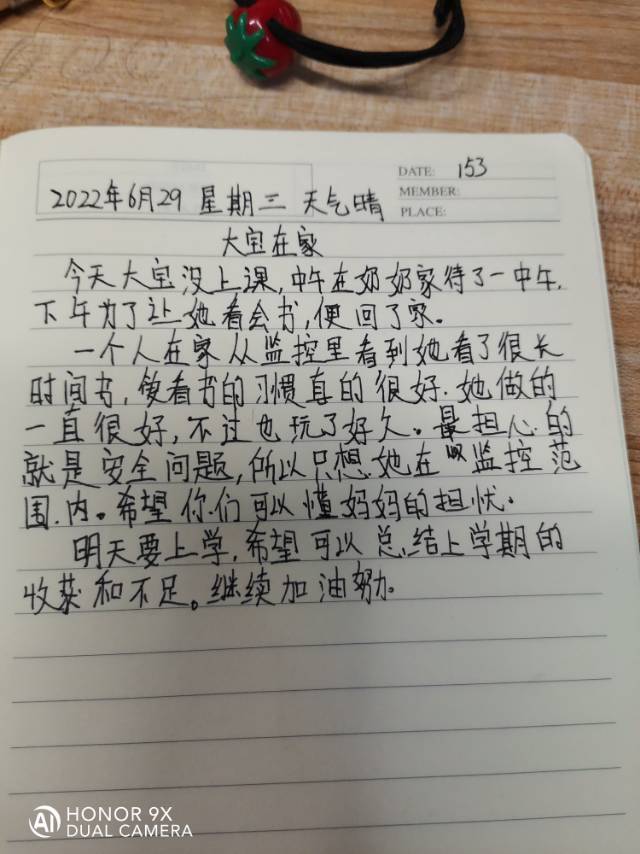 DATE: 153
MEMBER:
PLACE:
2022年6月29 星期三 天气晴
大宝在家
今天大宝没上课,中午在奶奶家待了一中午,
下午为了让她看会书,便回了家。
一个人在家从监控里看到她看了很长
时间书,看书的习惯真的很好.她做的
一直很好,不过也玩了好久。最担心的
就是安全问题,所以只想她在监控范
围内。希望你们可以懂妈妈的担忧.
明天要上学,希望可以总结上学期的
收获和不足。继续加油努力.
HONOR 9X
AI DUAL CAMERA